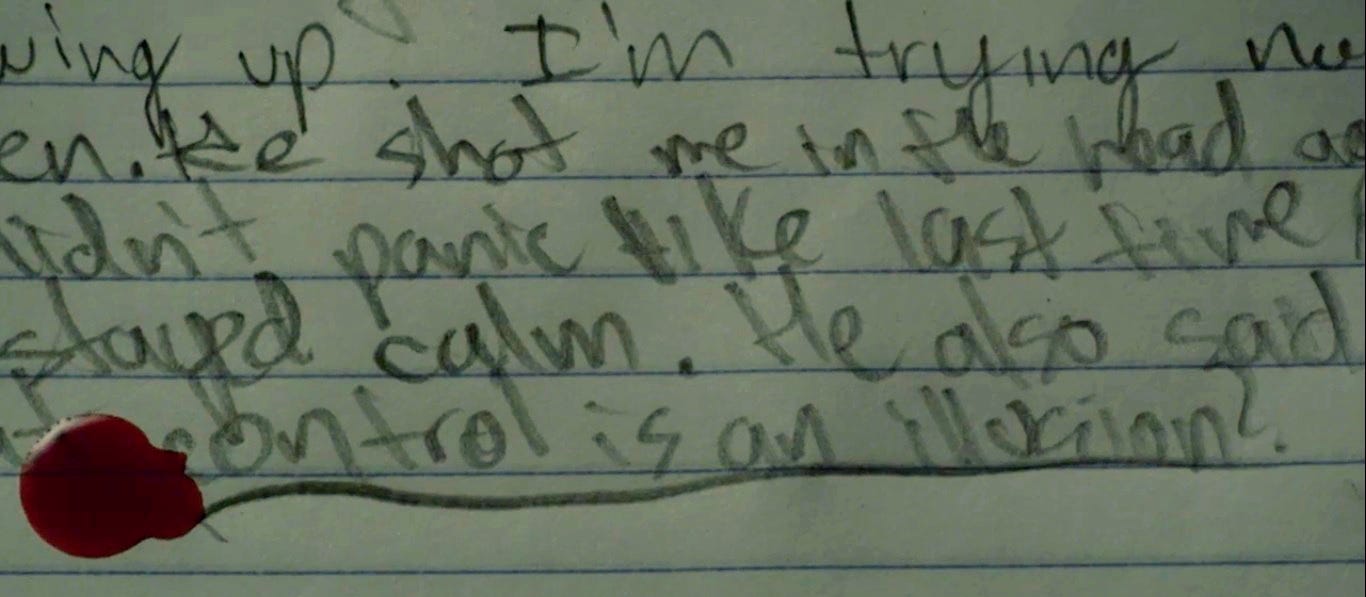 wing up? I'm trying no
en. He shot me in the head ag
didn't panic like last time I
stayed calm. He also said
control is an illusion?